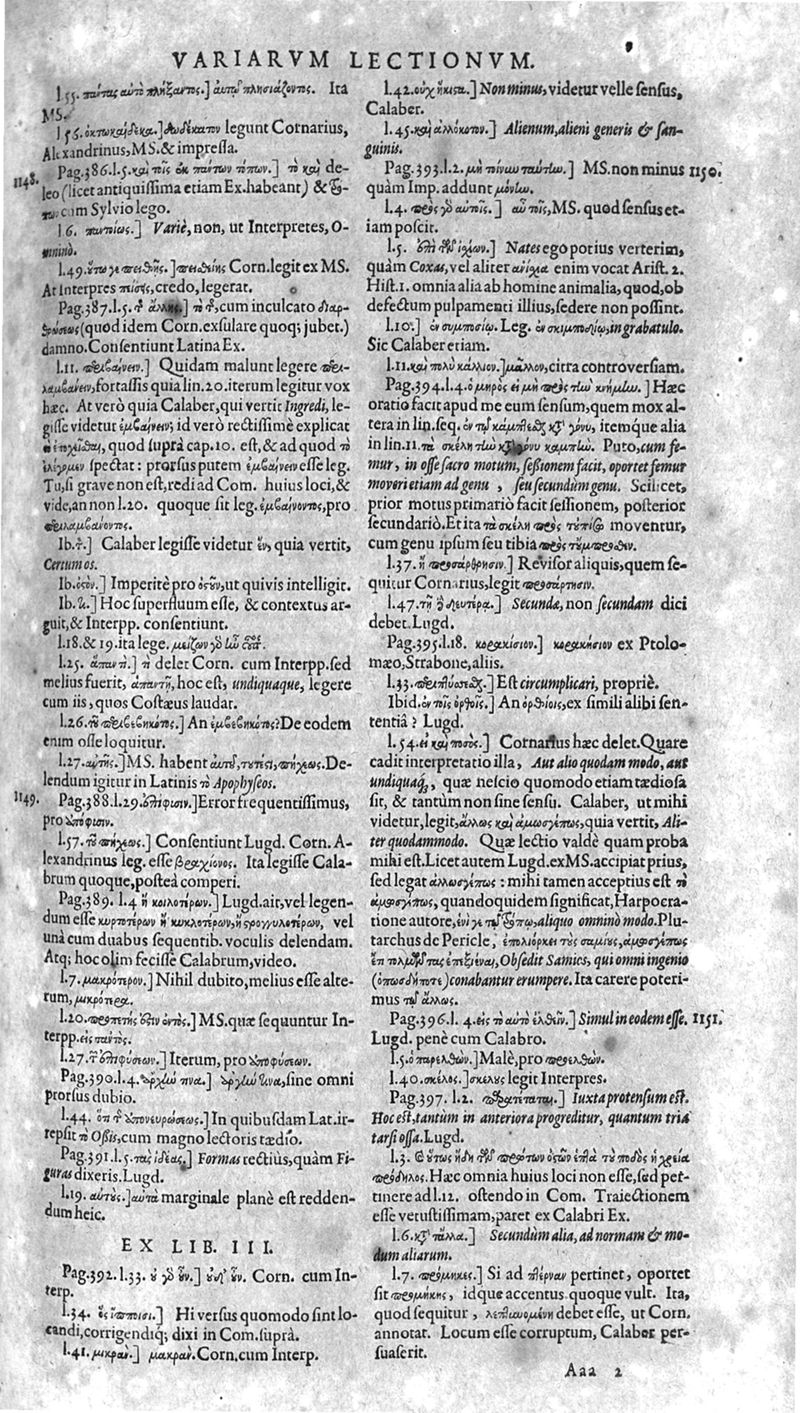 VARIARVM LECTIONVM.
l.55. πάντας αὐτὸ πλήξαντος.] αὐτῷ πλησιάζοντος. Ita
MS.
l.56. ὀκτωκαίδεκα.] δωδέκατον legunt Cornarius,
Alexandrinus, MS. & impressa.
Pag.386.l.5. καὶ τοῖς ἐκ πάντων τόπων.] τὸ καὶ de-
1148.
leo (licet antiquissima etiam Ex. habeant) &
cum Sylvio lego.
l.6. παντοίως.] Variè, non, ut Interpretes, O-
mnino.
l.49. Corn. legit ex MS.
At Interpres πίστις, credo, legerat.
Pag.387.l.5. cum inculcato διαρ-
θρώσεως (quod idem Corn. exsulare quoq; jubet.)
damno. Consentiunt Latina Ex.
l.11. περιβαίνειν.] Quidam malunt legere περι-
λαμβάνειν, fortassis quia lin.20. iterum legitur vox
hæc. At verò quia Calaber, qui vertit Ingredi, le-
gisse videtur ἐμβαίνειν; id verò rectissimè explicat
quod suprà cap.10. est, & ad quod τὸ
spectat: prorsus putem ἐμβαίνειν esse leg.
Tu, si grave non est, redi ad Com. huius loci, &
vide, an non l.20. quoque sit leg. ἐμβαίνοντος, pro
περιλαμβάνοντος.
Ib. Calaber legisse videtur ἓν, quia vertit,
Certum os.
Ib. ὀστὸν.] Imperitè pro ὀστοῦν, ut quivis intelligit.
Ib. Hoc superfluum esse, & contextus ar-
guit, & Interpp. consentiunt.
l.18. & 19. ita lege. μείζων
l.25. ἅπαντι.] τι delet Corn. cum Interpp. sed
melius fuerit, ἁπαντῆ, hoc est, undiquaque, legere
cum iis, quos Costæus laudat.
l.26. τοῦ περιβεβηκότος.] An ἐμβεβηκότος? De eodem
enim osse loquitur.
l.27. αὐτῆς.] MS. habent αὐτοῦ, τουτέστι, πήχεως. De-
lendum igitur in Latinis τὸ Apophyseos.
1149.
Pag.388.l.29. ἐπίφυσιν.] Error frequentissimus,
pro ὑπόφυσιν.
l.57. τοῦ πήχεως.] Consentiunt Lugd. Corn. A-
lexandrinus leg. esse βραχίονος. Ita legisse Cala-
brum quoque, posteà comperi.
Pag.389. l.4 ἢ κοιλοτέρων.] Lugd. ait, vel legen-
dum esse κυρτοτέρων ἢ κυκλοτέρων, ἢ στρογγυλοτέρων, vel
unà cum duabus sequentib. voculis delendam.
Atq; hoc olim fecisse Calabrum, video.
l.7. μακρότερον.] Nihil dubito, melius esse alte-
rum, μικρότερα.
l.20. προπετὴς ὀξὺν ὄντος.] MS. quæ sequuntur In-
terpp. εἰς παντὸς.
l.27. τῶν ἐπιφύσεων.] Iterum, pro ὑποφύσεων.
Pag.390.l.4. ἀρχὴν τινα.] ἀρχὴν ἵνα, sine omni
prorsus dubio.
l.44. ὅτι τῆς ὑπονευρώσεως.] In quibusdam Lat. ir-
repsit τὸ Ossis, cum magno lectoris tædio.
Pag.391.l.5. τὰς ἰδέας.] Formas rectius, quàm Fi-
guras dixeris. Lugd.
l.19. αὐτοὺς.] αὐτὰ marginale planè est redden-
dum heic.
EX LIB. III.
Pag.392.l.33. οὐ γὰρ οὖν.] οὐδ' οὖν. Corn. cum In-
terp.
l.34. Hi versus quomodo sint lo-
candi, corrigendiq; dixi in Com. suprà.
l.41. μικρὰν.] μακρὰν. Corn. cum Interp.
l.42. οὐχ ἥκιστα.] Non minus, videtur velle sensus,
Calaber.
l.45. καὶ ἀλλόκοτον.] Alienum, alieni generis & san-
guinis.
Pag.393.l.2. μὴ πίνων ταύτην.] MS. non minus 1150.
quàm Imp. addunt μόνην.
l.4. πρὸς γὰρ αὐτοῖς.] αὖ τοῖς, MS. quod sensus et-
iam poscit.
l.5. ἐπὶ τῶν ἰσχίων.] Nates ego potius verterim,
quàm Coxas, vel aliter ἀνίσχια enim vocat Arist. 2.
Hist.1. omnia alia ab homine animalia, quod, ob
defectum pulpamenti illius, sedere non possint.
l.10. ἐν συμποσίῳ. Leg. ἐν σκιμποδίῳ, in grabatulo.
Sic Calaber etiam.
l.11. καὶ πολὺ κάλλιον.] μᾶλλον, citra controversiam.
Pag.394.l.4. ὁ μηρὸς εἰ μὴ πρὸς τὴν κνήμην.] Hæc
oratio facit apud me eum sensum, quem mox al-
tera in lin. seq. ἐν τῷ κάμπτεσθαι κατὰ γόνυ, itemque alia
in lin.11. τὰ σκέλη τὴν κατὰ γόνυ καμπὴν. Puto, cum fe-
mur, in osse sacro motum, sessionem facit, oportet femur
moveri etiam ad genu, seu secundùm genu. Scilicet,
prior motus primariò facit sessionem, posterior
secundariò. Et ita τὰ σκέλη πρὸς τοὐπίσω moventur,
cum genu ipsum seu tibia πρὸς τοὔμπροσθεν.
l.37. ἢ προσάρθρησιν.] Revisor aliquis, quem se-
quitur Cornarius, legit προσάρτησιν.
l.47. τῇ δὲ δευτέρα.] Secundæ, non secundam dici
debet. Lugd.
Pag.395.l.18. κορακίσιον.] κορακήσιον ex Ptolo-
mæo, Strabone, aliis.
l.33. περιπτύσσεσθαι.] Est circumplicari, propriè.
Ibid. ἐν τοῖς ὀρθοῖς.] An ὀρθίοις, ex simili alibi sen-
tentiâ? Lugd.
l.54. εἰ καὶ ποσὸς.] Cornarius hæc delet. Quare
cadit interpretatio illa, Aut alio quodam modo, aut
undiquaq;, quæ nescio quomodo etiam tædiosa
sit, & tantùm non sine sensu. Calaber, ut mihi
videtur, legit, ἄλλως καὶ ἀμωσγέπως, quia vertit, Ali-
ter quodammodo. Quæ lectio valdè quam proba
mihi est. Licet autem Lugd. ex MS. accipiat prius,
sed legat ἀλλωσγέπως: mihi tamen acceptius est τὸ
ἀμωσγέπως, quandoquidem significat, Harpocra-
tione autore, ἑνί γε τῷ τρόπῳ, aliquo omninò modo. Plu-
tarchus de Pericle, ἐπολιόρκει τοὺς σαμίους, ἀμωσγέπως
ἐπεξιέναι, Obsedit Samios, qui omni ingenio
(ὁπωσδήποτε) conabantur erumpere. Ita carere poteri-
mus τῷ ἄλλως.
Pag.396.l.4. εἰς τὸ αὐτὸ ἐλθεῖν.] Simul in eodem esse. 1151.
Lugd. penè cum Calabro.
l.5. ὁ παρελθὼν.] Malè, pro προελθὼν.
l.40. σκέλος.] σκέλους legit Interpres.
Pag.397. l.2. παρατέταται.] Iuxta protensum est.
Hoc est, tantùm in anteriora progreditur, quantum tria
tarsi ossa. Lugd.
l.3. οὕτως ἤδη τῶν πρώτων ὀστῶν ἑπτὰ τοῦ ποδὸς ἡ χρεία
πρόδηλος. Hæc omnia huius loci non esse, sed per-
tinere ad l.12. ostendo in Com. Traiectionem
esse vetustissimam, paret ex Calabri Ex.
l.6. κατὰ τἄλλα.] Secundùm alia, ad normam & mo-
dum aliarum.
l.7. προμήκες.] Si ad πτέρναν pertinet, oportet
sit προμήκης, idque accentus quoque vult. Ita,
quod sequitur, λεπτυνομένη debet esse, ut Corn.
annotat. Locum esse corruptum, Calaber per-
suaserit.
Aaa 2